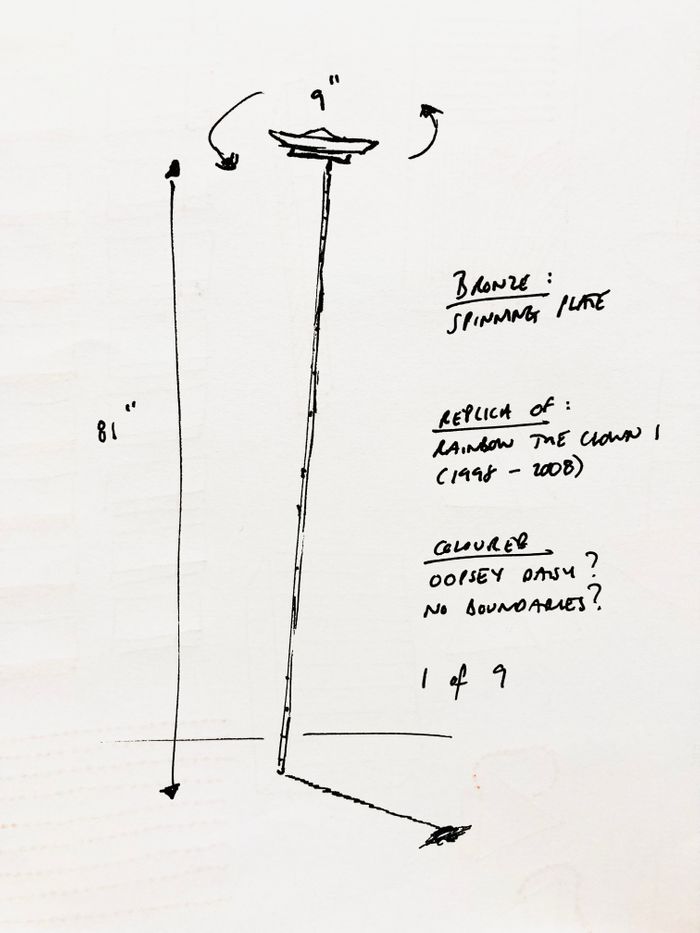 9"
81"
BRONZE:
SPINNING PLATE
REPLICA OF:
RAINBOW THE CLOWN 1
(1998 - 2008)
COLOURED
OOPSEY DAISY?
NO BOUNDARIES?
1 of 9